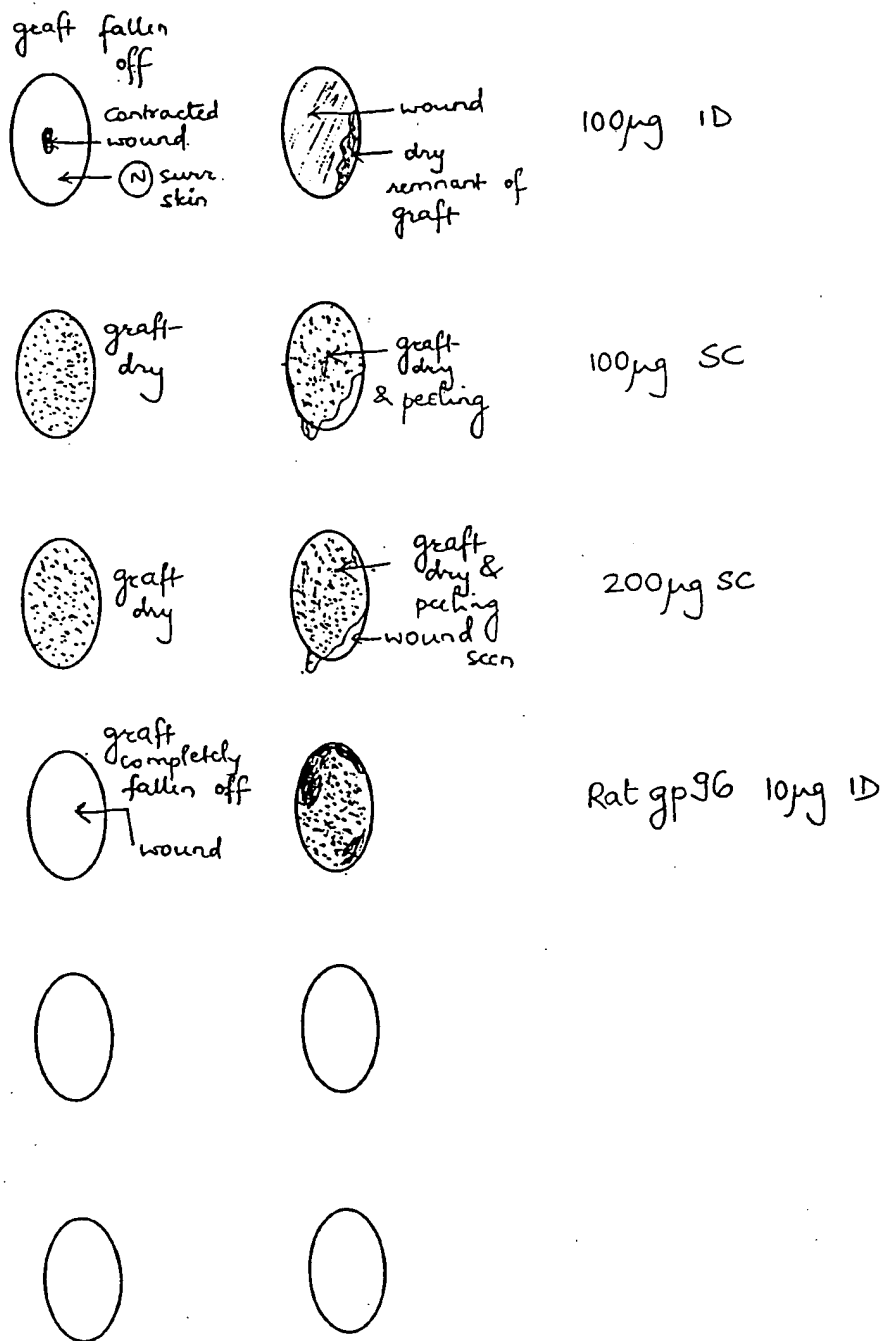 graft fallen
off
contracted
wound
N surr.
skin
wound
dry
remnant of
graft
100µg ID
graft-
dry
graft-
dry
& peeling
100µg SC
graft
dry
graft
dry &
peeling
wound
seen
200µg SC
graft
completely
fallen off
wound
Rat gp96 10µg ID